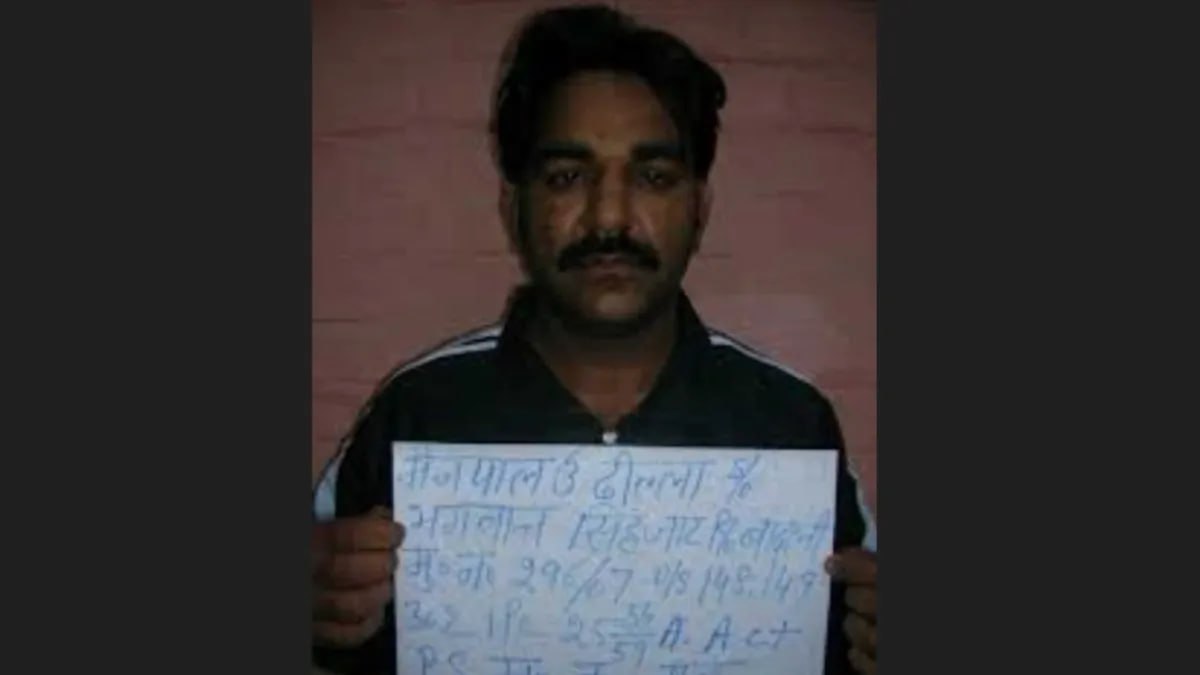 मेनपाल उ ढील्ला S/o
भगवान सिंह जाट
मु० न० 296/07 U/S 148.149
IPC 25 54/59 A. Act
P.S